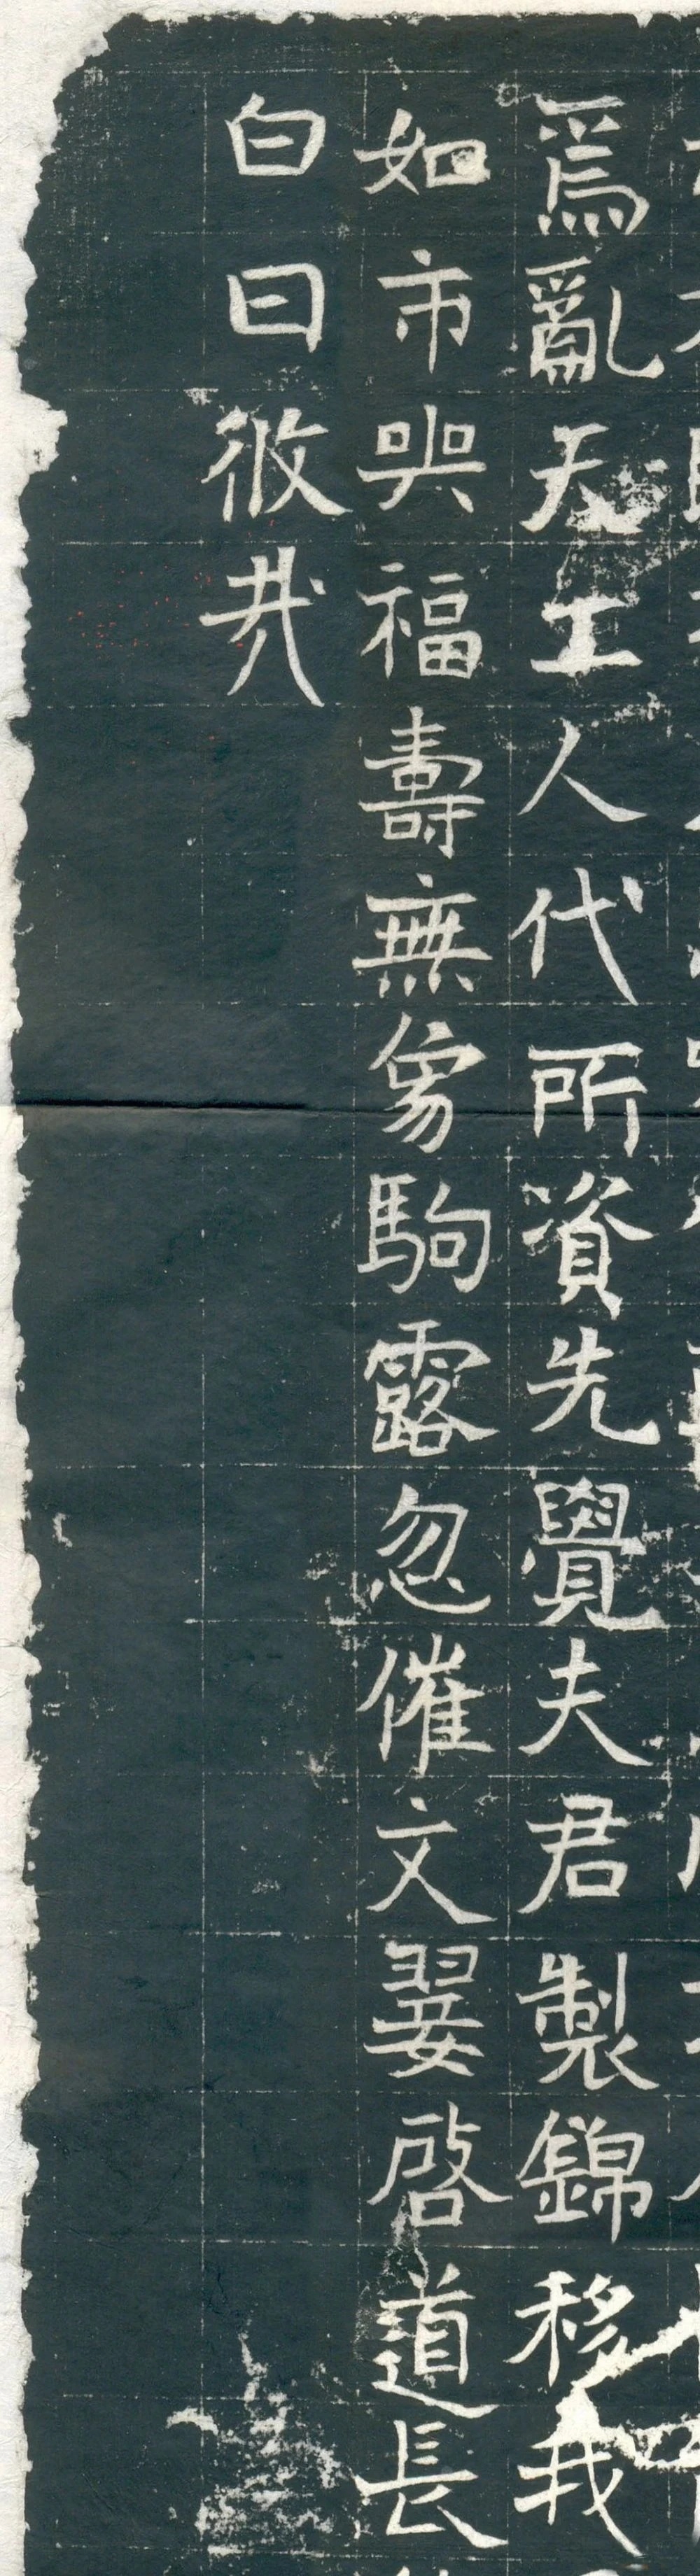 爲亂天工人代所資先覺夫君製錦移我
如市與福壽無象駒露忽催文翣啓道長
白日攸哉